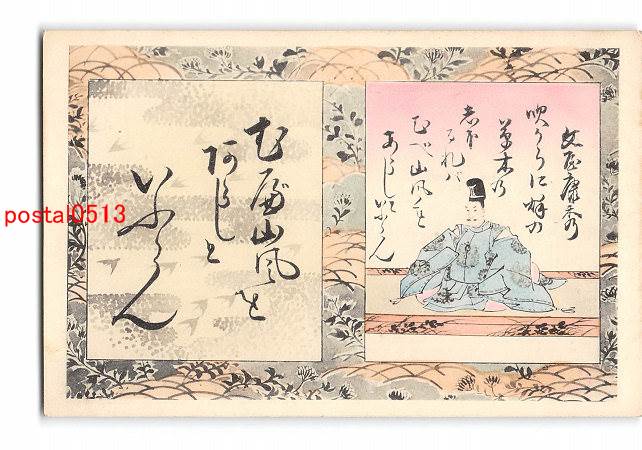 文屋康秀
吹からに秋の
草木の
しほ
るれバ
むべ山風を
あらしといふらん
むべ山風を
あらしと
いふらん
postal0513